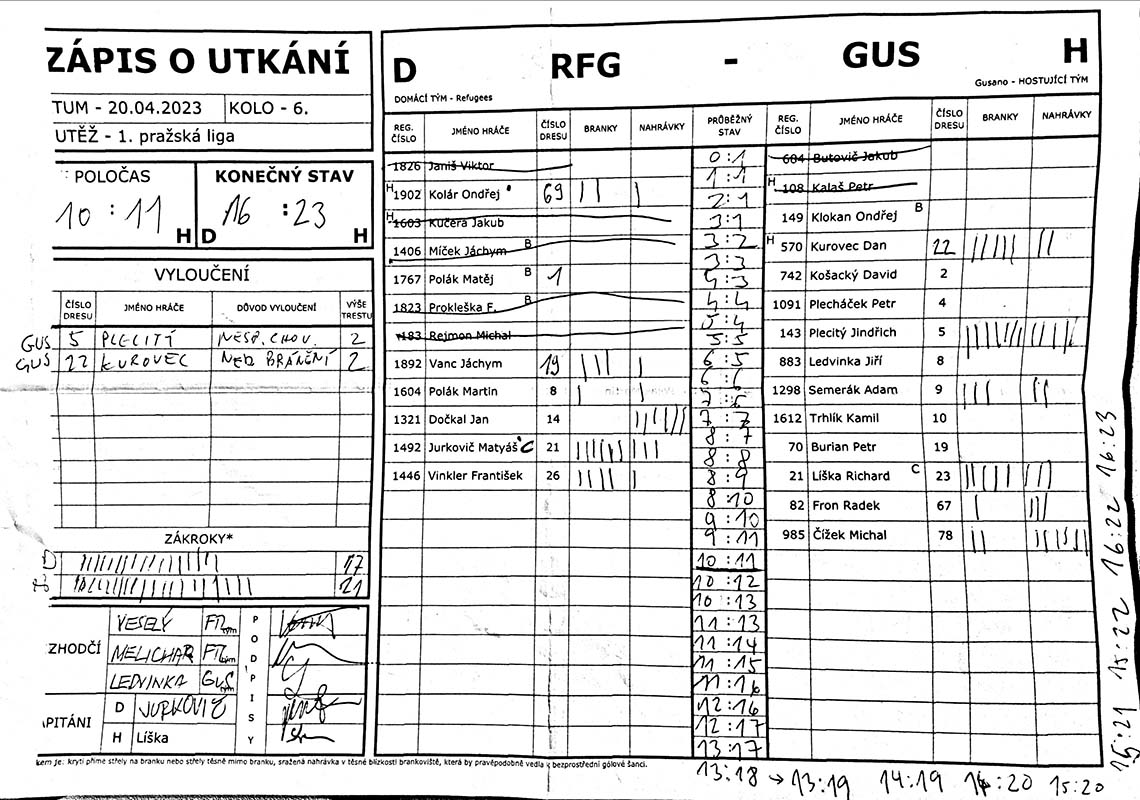 ZÁPIS O UTKÁNÍ
TUM - 20.04.2023 KOLO - 6.
UTĚŽ - 1. pražská liga
POLOČAS KONEČNÝ STAV
10 : 11 H D 16 : 23 H
VYLOUČENÍ
ČÍSLO DRESU JMÉNO HRÁČE DŮVOD VYLOUČENÍ VÝŠE TRESTU
GUS 5 PLECITÝ NESP. CHOV. 2
GUS 22 KUROVEC NED BRÁNĚNÍ 2
ZÁKROKY*
D 17
H 21
ZHODČÍ
VESELÝ FTL tým
MELICHAR FTL tým
LEDVINKA GUS tým
PODPISY
APITÁNI
D JURKOVIČ
H Líška
kem je: krytí přímé střely na branku nebo střely těsně mimo branku, sražená nahrávka v těsné blízkosti brankoviště, která by pravěpodobně vedla k bezprostřední gólové šanci.
D RFG - GUS H
DOMÁCÍ TÝM - Refugees Gusano - HOSTUJÍCÍ TÝM
REG. ČÍSLO JMÉNO HRÁČE ČÍSLO DRESU BRANKY NAHRÁVKY PRŮBĚŽNÝ STAV REG. ČÍSLO JMÉNO HRÁČE ČÍSLO DRESU BRANKY NAHRÁVKY
1826 Janiš Viktor
H 1902 Kolár Ondřej 69 || |
H 1603 Kučera Jakub
1406 Míček Jáchym B
1767 Polák Matěj B 1
1823 Prokleška F. B
1183 Rejmon Michal
1892 Vanc Jáchym 19 ||| |
1604 Polák Martin 8 | |
1321 Dočkal Jan 14
1492 Jurkovič Matyáš C 21
1446 Vinkler František 26 |||| |
0:1
1:1
2:1
3:1
3:2
3:3
4:3
4:4
5:4
5:5
6:5
6:6
7:6
7:7
8:7
8:8
8:9
8:10
9:10
9:11
10:11
10:12
10:13
11:13
11:14
11:15
11:16
12:16
12:17
13:17
13:18 → 13:19 14:19 14:20 15:20
15:21 15:22 16:22 16:23
604 Butovič Jakub
H 108 Kalaš Petr
149 Klokan Ondřej B
H 570 Kurovec Dan 22 ||||| ||
742 Košacký David 2
1091 Plecháček Petr 4
143 Plecitý Jindřich 5
883 Ledvinka Jiří 8
1298 Semerák Adam 9 ||| ||
1612 Trhlík Kamil 10
70 Burian Petr 19
21 Líška Richard C 23
82 Fron Radek 67
985 Čížek Michal 78